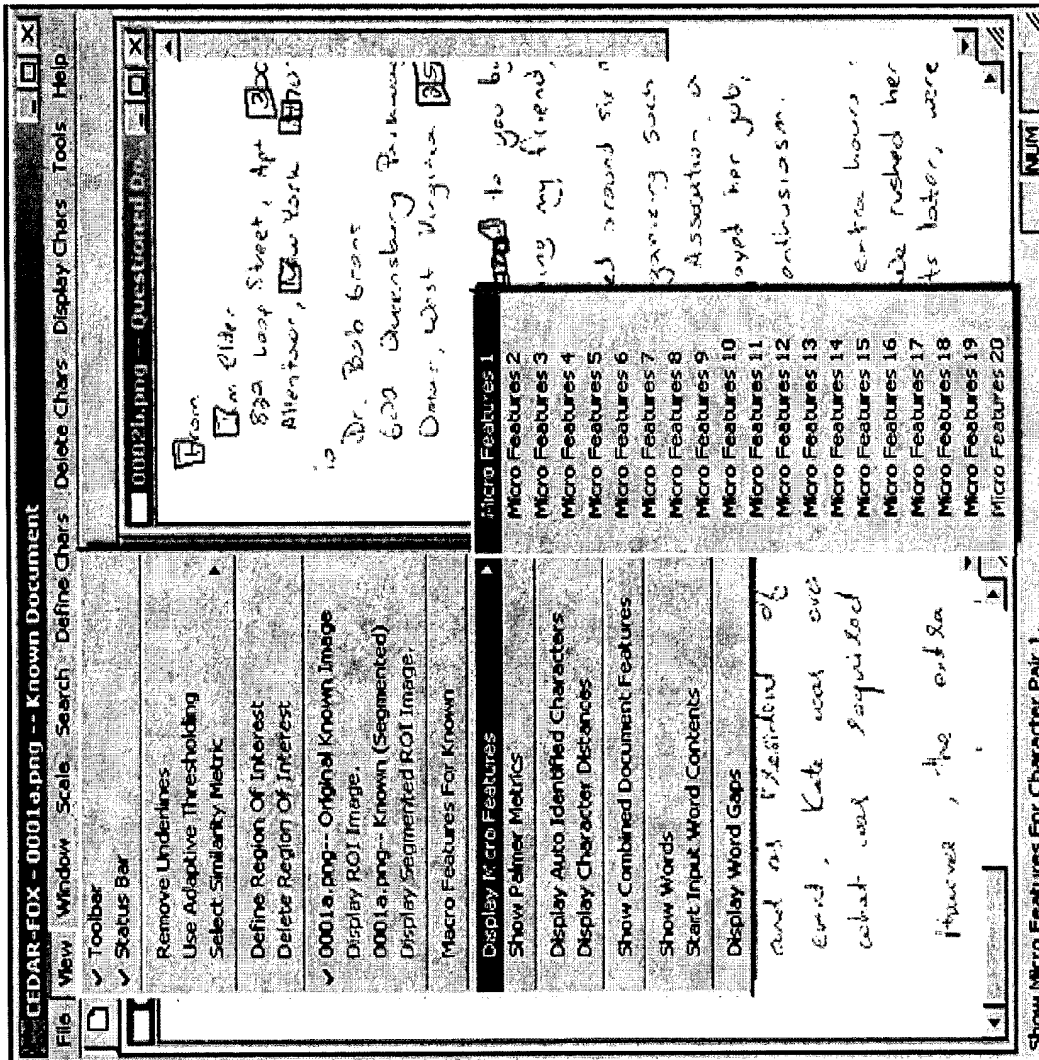 CEDAR-FOX - 0001a.png -- Known Document
File View Window Scale Search Define Chars Delete Chars Display Chars Tools Help
✓ Toolbar
✓ Status Bar
Remove Underlines
Use Adaptive Thresholding
Select Similarity Metric
Define Region Of Interest
Delete Region Of Interest
✓ 0001a.png-- Original Known Image
Display ROI Image.
0001a.png-- Known (Segmented)
Display Segmented ROI Image.
Macro Features For Known
Display Micro Features
Show Palmer Metrics
Display Auto Identified Characters
Display Character Distances
Show Combined Document Features
Show Words
Start Input Word Contents
Display Word Gaps
Micro Features 1
Micro Features 2
Micro Features 3
Micro Features 4
Micro Features 5
Micro Features 6
Micro Features 7
Micro Features 8
Micro Features 9
Micro Features 10
Micro Features 11
Micro Features 12
Micro Features 13
Micro Features 14
Micro Features 15
Micro Features 16
Micro Features 17
Micro Features 18
Micro Features 19
Micro Features 20
and as President of
event, Kate was over
what was required
However, the extra
0002b.png -- Questioned Do...
From
Jim Elder
829 Loop Street, Apt 300
Allentown, New York 1470
To
Dr. Bob Grant
602 Queensberry Parkway
Omar, West Virginia 25
to you
my friend,
around six
such
Association
her job,
enthusiasm.
extra hours
rushed her
later, were
NUM
Show Micro Features For Character Pair 1